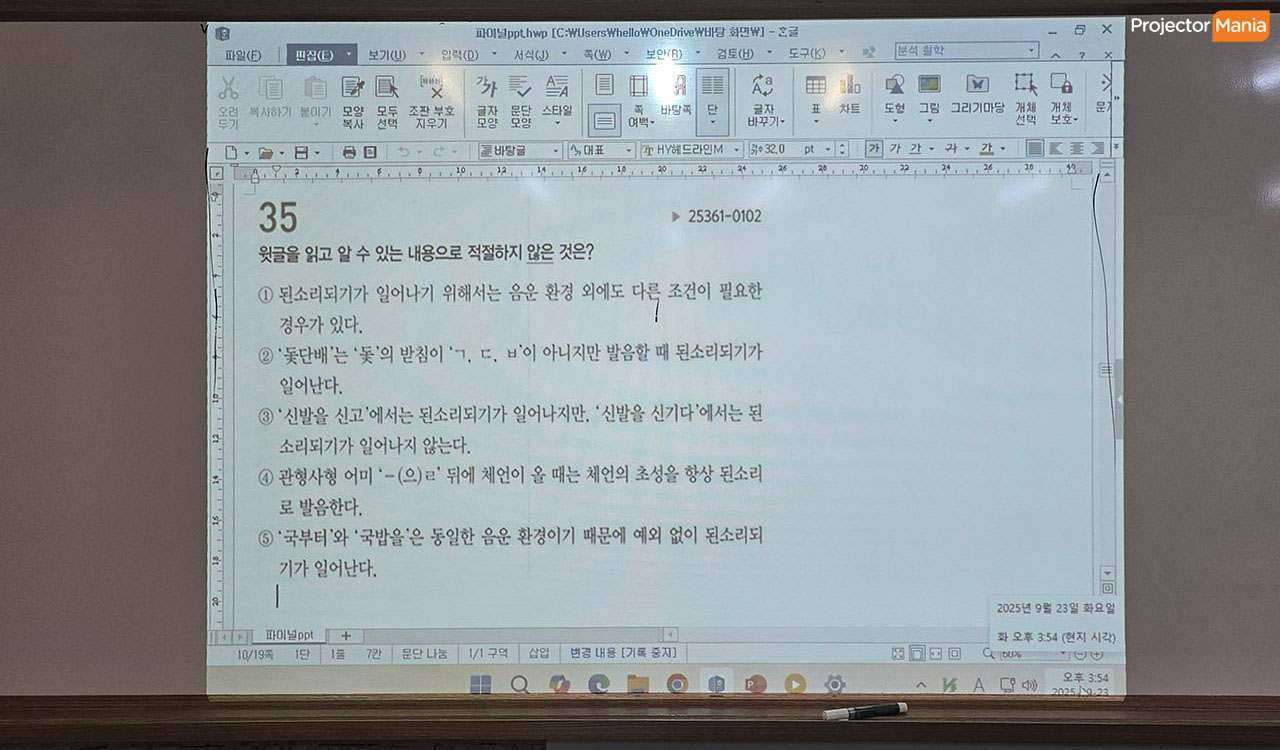 Projector Mania
파이널ppt.hwp [C:₩Users₩hello₩OneDrive₩바탕 화면₩] - 한글
파일(F) 편집(E) 보기(U) 입력(D) 서식(J) 쪽(W) 보안(R) 검토(H) 도구(K) 분석 철학
오려두기 복사하기 붙이기 모양 복사 모두 선택 조판 부호 지우기 글자 모양 문단 모양 스타일 쪽 여백 바탕쪽 단 글자 바꾸기 표 차트 도형 그림 그리기마당 개체 선택 개체 보호
바탕글 대표 HY헤드라인M 32.0 pt 가 가 가 가 가
35
▶ 25361-0102
윗글을 읽고 알 수 있는 내용으로 적절하지 않은 것은?
① 된소리되기가 일어나기 위해서는 음운 환경 외에도 다른 조건이 필요한
경우가 있다.
② ‘돛단배’는 ‘돛’의 받침이 ‘ㄱ, ㄷ, ㅂ’이 아니지만 발음할 때 된소리되기가
일어난다.
③ ‘신발을 신고’에서는 된소리되기가 일어나지만, ‘신발을 신기다’에서는 된
소리되기가 일어나지 않는다.
④ 관형사형 어미 ‘-(으)ㄹ’ 뒤에 체언이 올 때는 체언의 초성을 항상 된소리
로 발음한다.
⑤ ‘국부터’와 ‘국밥을’은 동일한 음운 환경이기 때문에 예외 없이 된소리되
기가 일어난다.
2025년 9월 23일 화요일
화 오후 3:54 (현지 시각)
파이널ppt
10/19쪽 1단 1줄 7칸 문단 나눔 1/1 구역 삽입 변경 내용 [기록 중지] 60%
A 오후 3:54
2025-09-23